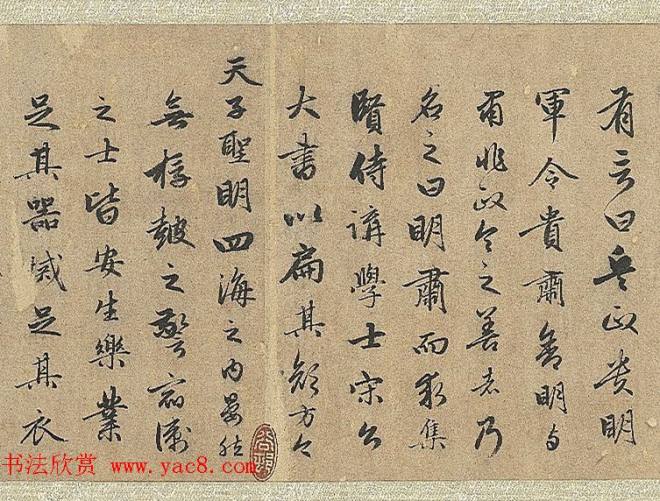 有言曰兵政贵明
軍令貴肅舍明与
肅非政令之善者乃
名之曰明肅而求集
賢侍講學士宋公
大書以扁其顏方今
天子聖明四海之内晏然
無桴鼓之警宿衛
之士皆安生樂業
足其器足其衣
书法欣赏 www.yac8.com